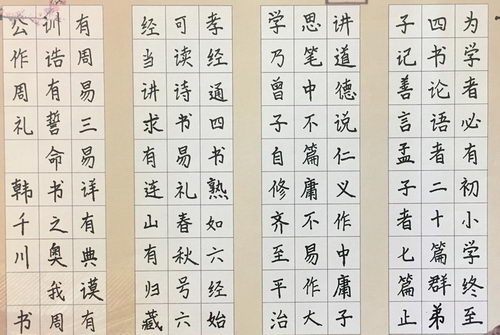 为学者必有初小学终至
四书论语者二十篇群弟
子记善言孟子者七篇止
讲道德说仁义作中庸子
思笔中不篇庸不易作大
学乃曾子自修齐至平治
孝经通四书熟如六经始
可读诗书易礼春秋号六
经当讲求有连山有归藏
有周易三易详有典谟有
训诰有誓命书之奥我周
公作周礼 韩千川 书